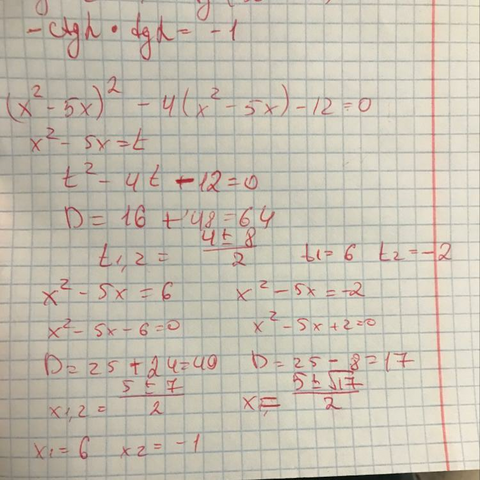 - ctgα · tgα = -1
(x² - 5x)² - 4(x² - 5x) - 12 = 0
x² - 5x = t
t² - 4t - 12 = 0
D = 16 + 48 = 64
t1,2 = (4 ± 8)/2 t1 = 6 t2 = -2
x² - 5x = 6 x² - 5x = -2
x² - 5x - 6 = 0 x² - 5x + 2 = 0
D = 25 + 24 = 49 D = 25 - 8 = 17
x1,2 = (5 ± 7)/2 x = (5 ± √17)/2
x1 = 6 x2 = -1